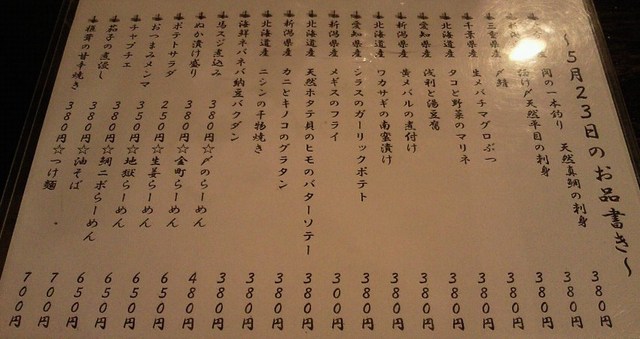 ～5月23日のお品書き～
間の一本釣り 天然真鯛の刺身 380円
〆天然平目の刺身 380円
三重県産 〆鯖 380円
千葉県産 生メバチマグロぶつ 380円
北海道産 タコと野菜のマリネ 380円
愛知県産 浅利と湯豆腐 380円
新潟県産 黄メバルの煮付け 380円
北海道産 ワカサギの南蛮漬け 380円
愛知県産 シラスのガーリックポテト 380円
新潟県産 メギスのフライ 300円
北海道産 天然ホタテ貝のヒモのバターソテー 380円
新潟県産 カニとキノコのグラタン 380円
北海道産 ニシンの干物焼き 380円
海鮮ネバネバ納豆バクダン 380円
馬スジ煮込み 380円☆〆のらーめん 480円
ぬか漬け盛り 380円☆金町らーめん 650円
ポテトサラダ 250円☆生姜らーめん 650円
おつまみメンマ 350円☆地獄らーめん 650円
チャプチェ 380円☆鯛ニボらーめん 650円
茄子の煮浸し 380円☆油そば 700円
椎茸の甘辛焼き 380円☆つけ麺 700円